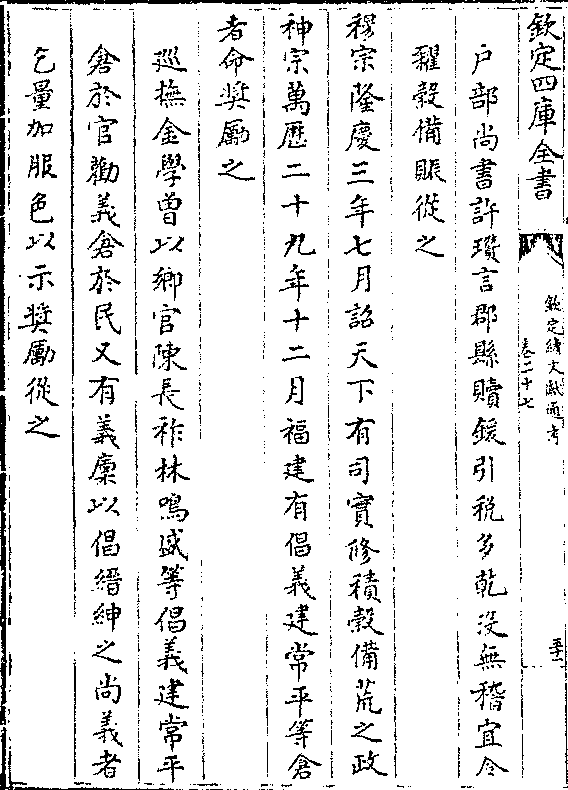 欽定四庫全書
欽定續文獻通考
卷二十七
户部尚書許瓚言郡縣贖鍰引税多乾没無稽宜令
糴穀備賑從之
穆宗隆慶三年七月詔天下有司實修積穀備荒之政
神宗萬厯二十九年十二月福建有倡義建常平等倉
者命奬勵之
廵撫金學曾以鄉官陳長祚林鳴盛等倡義建常平
倉於官勸義倉於民又有義廪以倡縉紳之尚義者
乞量加服色以示奬勵從之